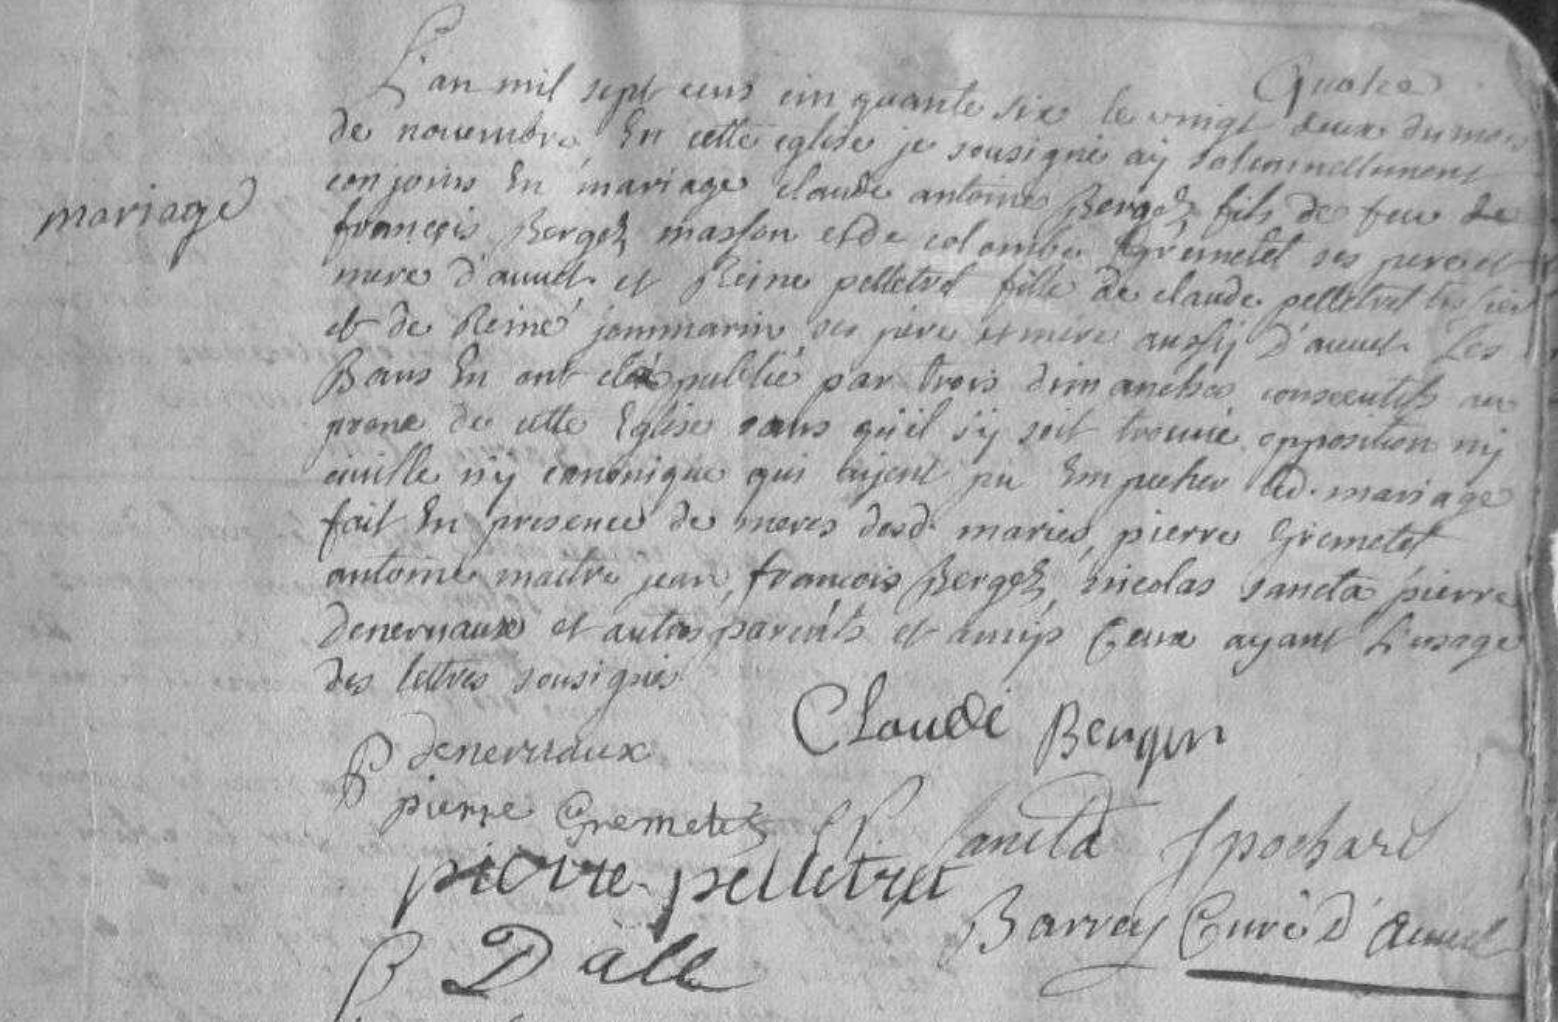 quatre
L'an mil sept cens cinquante six le vingt deux du mois
mariage
de novembre En cette eglise je sousigné aÿ solemnellement
conjoins En mariage claude antoine Bergez fils de feu
françois Bergez masson et de colombe Gremetet ses pere et
mere d'auvet et Reine pelletret fille de claude pelletret
et de Reine jommarin ses père et mère aussÿ d'auvet Les
Bans En ont eté publié par trois dimanches consecutifs au
prone de cette Eglise sans qu'il s'ÿ soit trouvé opposition nÿ
civille nÿ canonique qui aÿent pu Empecher led. mariage
fait En presence de meres desd. mariés, pierre Gremetet
antoine maitre jean, françois Bergez, nicolas sancta pierre
denervaux et autres parents et amis Ceux ayant L'usage
des lettres sousignés
Claude Berger
P denervaux
pierre Gremetez
Sancta
J pochard
pierre pelletret
Barrey Curé D'Auvet
D alle